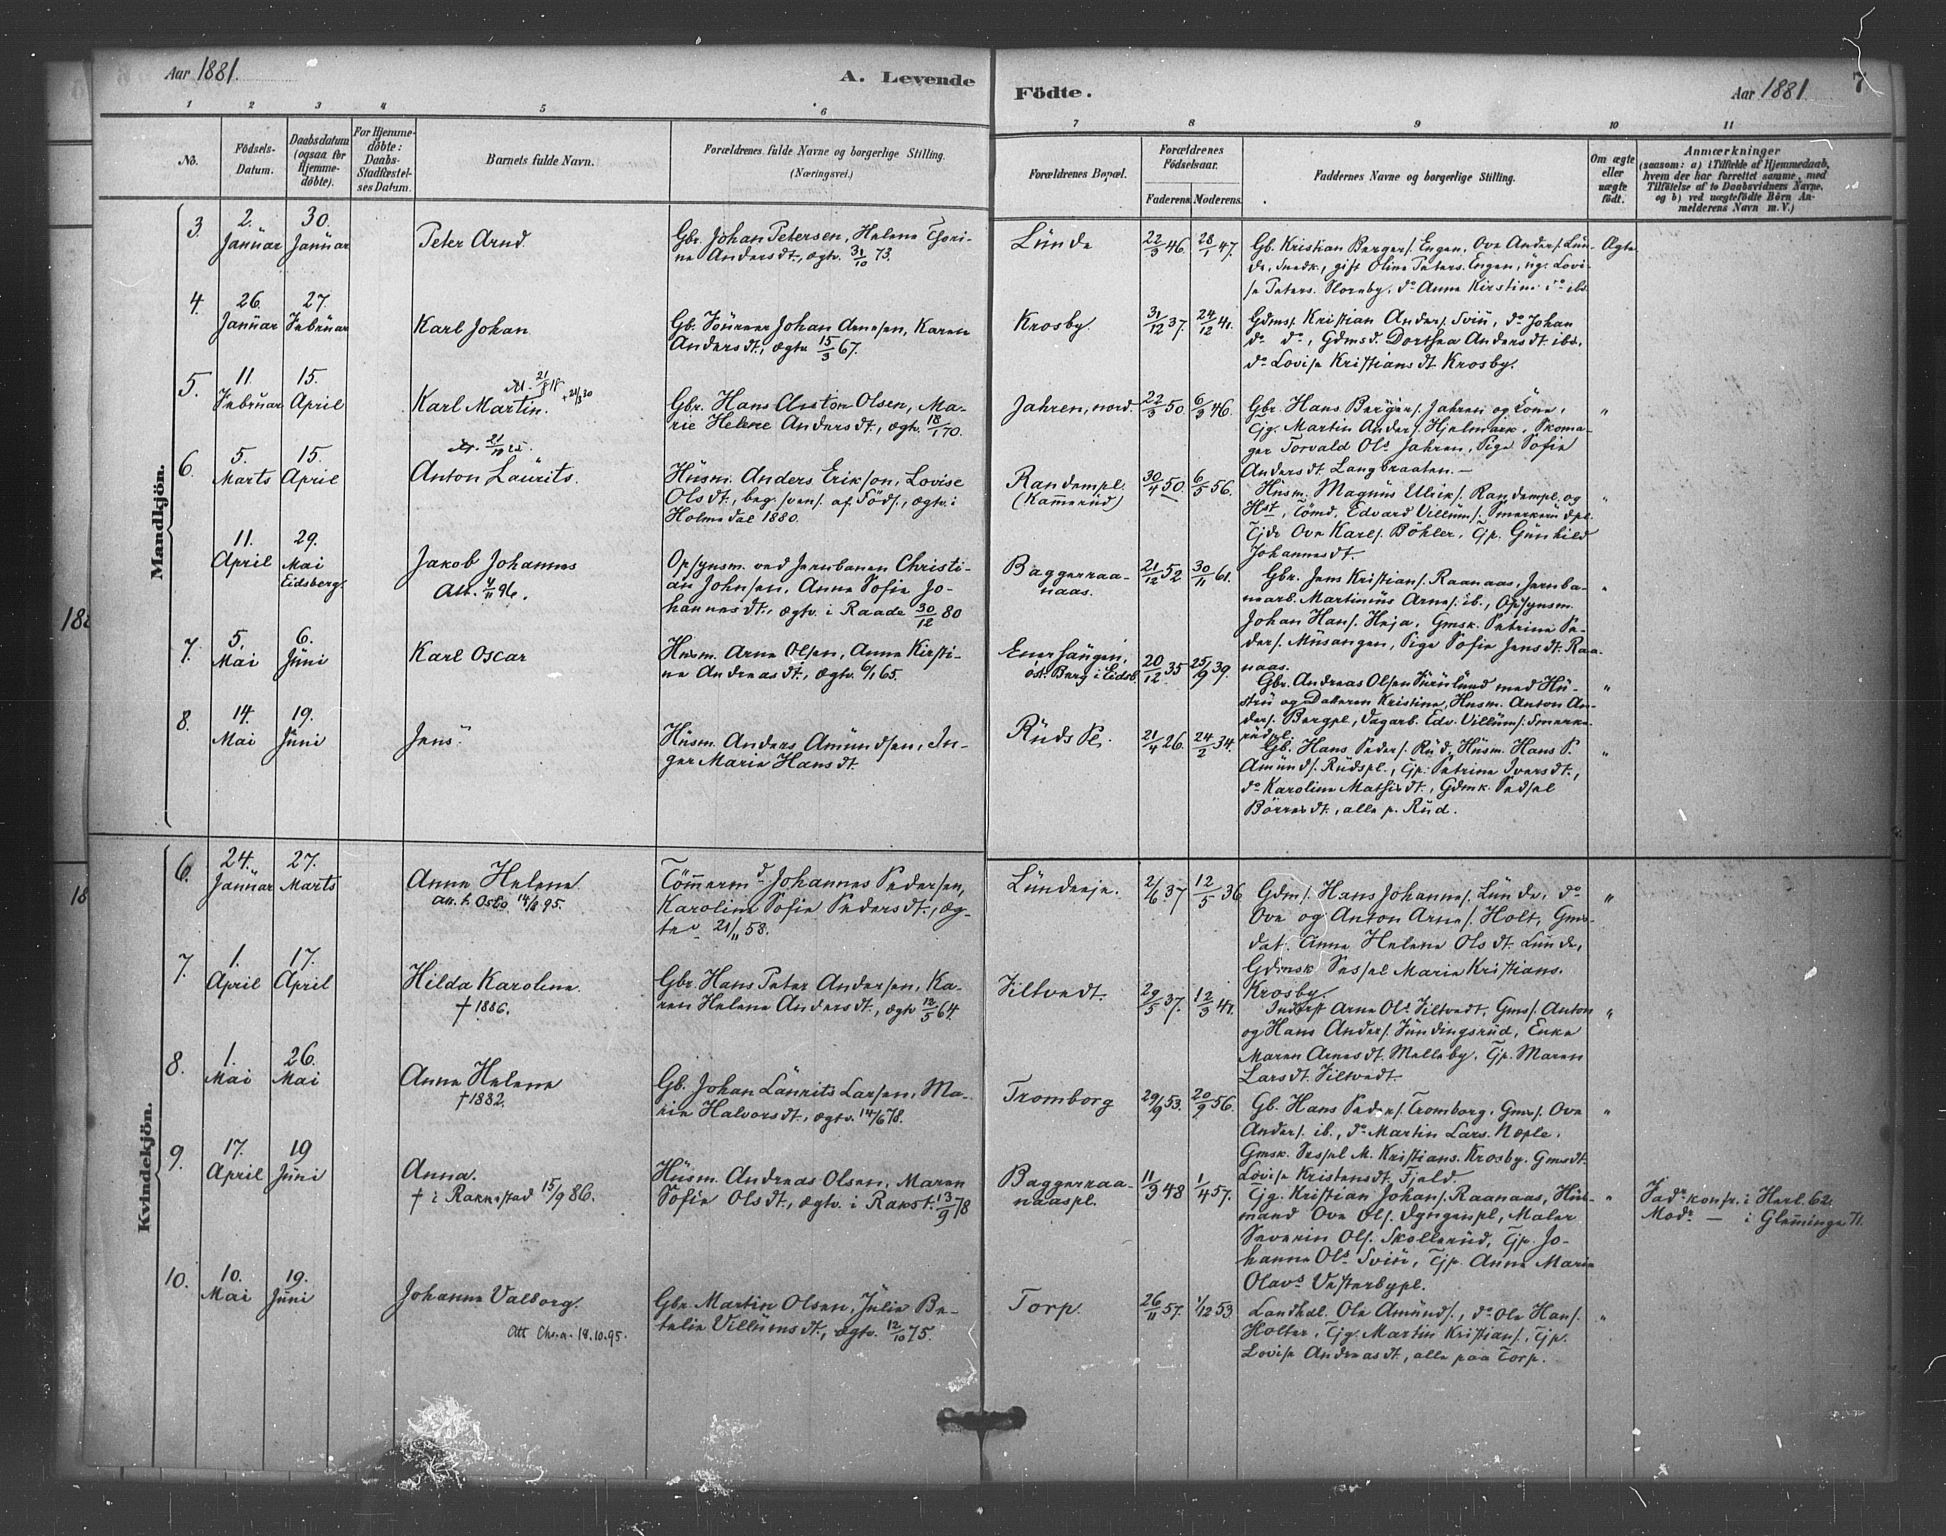 Aar 1881.
A. Levende
Födte.
Aar 1881
7
1 2 3 4 5 6 7 8 9 10 11
No.
Födsels-
Datum.
Daabsdatum
(ogsaa for
Hjemme-
döbte).
For Hjemme-
döbte:
Daabs-
Stadfæstel-
ses Datum.
Barnets fulde Navn.
Forældrenes fulde Navne og borgerlige Stilling.
(Næringsvei.)
Forældrenes Bopæl.
Forældrenes
Födselsaar.
Faderens. Moderens.
Faddernes Navne og borgerlige Stilling.
Om ægte
eller
uægte
födt.
Anmærkninger
(saasom: a) i Tilfælde af Hjemmedaab,
hvem der har forrettet samme, med
Tilföielse af to Daabsvidners Navne,
og b) ved uægtefödte Börn An-
melderens Navn m. V.)
Mandkjön.
3 2. Januar 30. Januar
Peter Arnd.
Gbr. Johan Petersen, Helene Thori-
ne Andersdt., ægtv. 31/10 73.
Lunde
22/3 46. 28/1 47.
Gb. Kristian Berger/. Engen, Ove Anders/. Lun-
de, Snedk., gift Oline Peters. Engen, ug. Lovi-
se Peters. Sloreby, do Anne Kirstine do ibd.
Ægte
4. 26. Januar 27. Februar
Karl Johan
Gb. Sönnen Johan Arnesen, Karen
Andersdt., ægtv. 15/3 67.
Krosby.
31/12 37. 24/12 41.
Gdms/. Kristian Anders/. Sviu, do Johan
do do, Gdmsd. Dorthea Andersdt ibd.
do Lovise Kristiansdt Krosby.
5. 11. Februar 15. April
Karl Martin.
Gbr. Hans Anton Olsen, Ma-
rie Helene Andersdt., ægtv. 18/1 70.
Jahren, nord.
22/3 50 6/9 46.
Gbr. Hans Berger/. Jahren og Kone,
Tjg. Martin Anders/. Hjelmark, Skoma-
ger Torvald Ols. Jahren, Pige Sofie
Andersdt Langbraaten.—
"
6. 5. Marts 15. April
Anton Laurits.
Husm. Anders Erikson, Lovise
Olsdt., beg. svens. af Föds., ægtv. i
Holmedal 1880.
Randempl.
(Kamerud)
30/4 50. 6/5 56.
Husm. Magnus Ulrik/. Randempl. og
Hst, Tömd. Edvard Villum/. Smerkerudpl.
Tjdr Ove Karl/. Böhler, Tp. Gunhild
Johannesdt.
"
11. April 29. Mai Eidsberg
Jakob Johannes
Att. 4/11 96.
Opsynsm. ved Jernbanen Christi-
an Johnsen, Anne Sofie Jo-
hannesdt., ægtv. i Raade 30/12 80
Baggerraa-
naas.
21/12 52 30/11 61.
Gbr. Jens Kristian/. Raanaas, Jernba-
nearb. Martinius Arne/. ib., Opsynsm.
Johan Hans/. Heja, Gmsk. Petrine Pe-
ders/. Musangen, Pige Sofie Jensdt. Raa-
naas.
"
7. 5. Mai 6. Juni
Karl Oscar
Husm. Arne Olsen, Anne Kirsti-
ne Andreasdt., ægtv. 6/1 65.
Enerhaugen,
öst. Berg i Eidsb.
20/12 35 25/9 39.
Gbr. Andreas Olsen Furulund med Hu-
stru og Datteren Kristine, Husm. Anton An-
ders/. Bergpl., Dagarb. Edv. Villum/. Smerke-
rudpl.
"
8. 14. Mai 19. Juni
Jens.
Husm. Anders Amundsen, In-
ger Marie Hansdt.
Ruds Pl.
21/4 26. 24/2 34.
Gb. Hans Peder/. Rud, Husm. Hans P.
Amund/. Rudspl., Tp. Petrine Iversdt.,
do Karoline Mathisdt., Gdmk. Sedsel
Börresdt., alle p. Rud.
"
Kvindekjön.
6. 24. Januar 27. Marts
Anne Helene
Att. t. Oslo 14/8 95.
Tömmermd Johannes Pedersen,
Karoline Sofie Pedersdt., æg-
tev 21/11 58.
Lundeeje.
2/6 37 12/5 36
Gdms/. Hans Johannes/. Lunde, do
Ove og Anton Arne/. Holt, Gms-
dat. Anne Helene Olsdt. Lunde,
Gdmsk Sessel Marie Kristians.
Krosby.
"
7. 1. April 17. April
Hilda Karoline.
† 1886.
Gbr. Hans Peter Andersen, Ka-
ren Helene Andersdt., ægtv 12/5 64.
Tiltvedt.
29/5 37. 12/3 41.
Inderst Arne Ols. Tiltvedt, Gms/. Anton
og Hans Anders/. Fundingsrud, Enke
Maren Arnesdt. Melleby, Tp. Maren
Larsdt. Tiltvedt.
"
8. 1. Mai 26. Mai
Anne Helene
† 1882.
Gb. Johan Laurits Larsen, Ma-
rie Halvorsdt., ægtv. 14/6 78.
Tromborg
29/9 53. 20/9 56.
Gb. Hans Peder/. Tromborg. Gms/. Ove
Anders/. ib., do Martin Lars. Næple.
Gmsk. Sessel M. Kristians. Krosby. Gmsdt.
Lovise Kristensdt. Fjeld.
"
9. 17. April 19 Juni
Anna.
† i Rakkestad 15/9 86.
Husm. Andreas Olsen, Maren
Sofie Olsdt., ægtv. i Rakst. 13/9 78
Baggerraa-
naaspl.
11/3 48 1/4 57.
Tjg. Kristian Johan/. Raanaas, Hus-
mand Ove Ols/. Dyngenpl., Maler
Severin Ols/. Skollerud, Tjp. Jo-
hanne Ols. Sviu, Tjp. Anne Marie
Olavs. Vesterbypl.
"
Fadr konfr. i Herl. 62.
Modr — i Glemminge 71.
10. 10. Mai 19. Juni
Johanne Valborg.
Att Chra. 18.10.95.
Gbr. Martin Olsen, Julie Be-
talie Villumsdt., ægtv. 12/10 75.
Torp
26/11 57. 1/12 53.
Landhdl. Ole Amund/., do Ole Hans/.
Holter, Tjg. Martin Kristian/., Tjp.
Lovise Andreasdt., alle paa Torp.
"